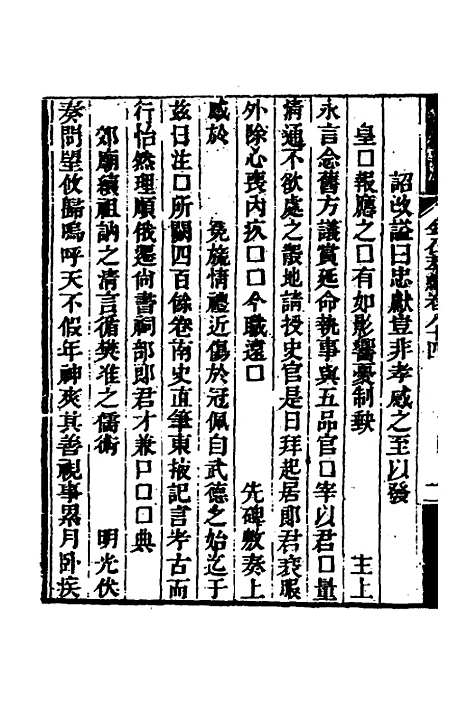 金石萃編卷八十四
詔改諡曰忠獻豈非孝感之至以發
皇□報應之□有如影響憂制缺　主上
永言念舊方議賞延命執事與五品官□宰以君□量
清通不欲處之散地請授史官是日拜起居郎君衰服
外除心喪內疚□□今職遠□　先碑敷奏上
感於　冕旒情禮近傷於冠佩自武德之始迄于
茲日注□所闕四百餘卷南史直筆東掖記言考古而
行怡然理順俄遷尚書祠部郎君才兼□□□□典
郊廟纉祖訥之清言循樊准之儒術　明光伏
奏問望攸歸嗚呼天不假年神爽其善視事累月臥疾